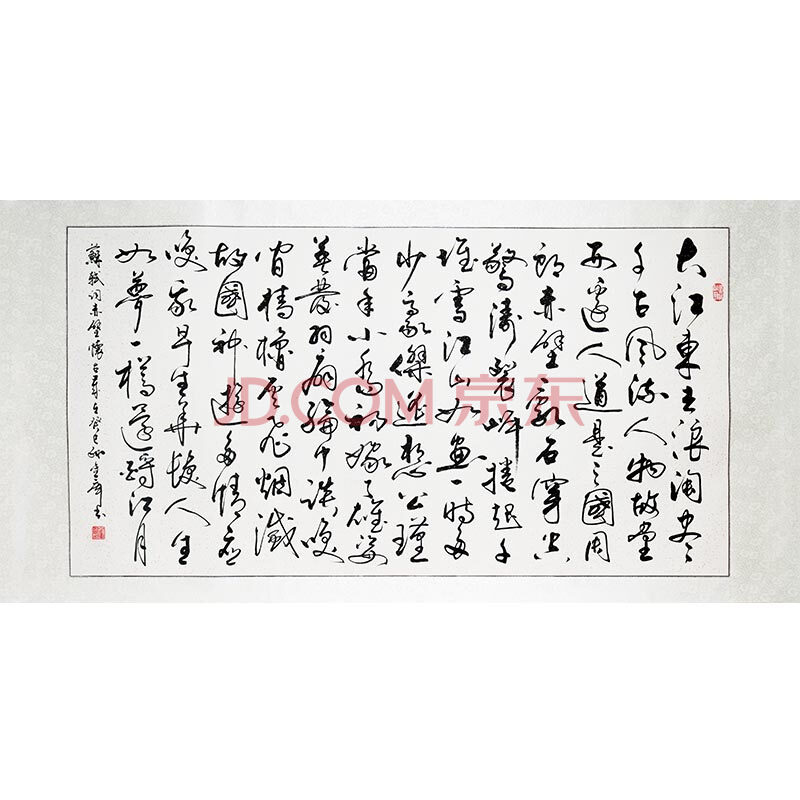 大江東去浪淘尽
千古風流人物故壘
西邊人道是三國周
郎赤壁亂石穿空
驚濤裂岸捲起千
堆雪江山如畫一時多
少豪傑遙想公瑾
當年小喬初嫁了雄姿
英發羽扇綸巾談咲
間檣櫓灰飛烟滅
故國神遊多情應
咲我早生華髮人生
如夢一樽還酹江月
蘇軾詞赤壁懷古歲在癸巳書
JD.COM 京东